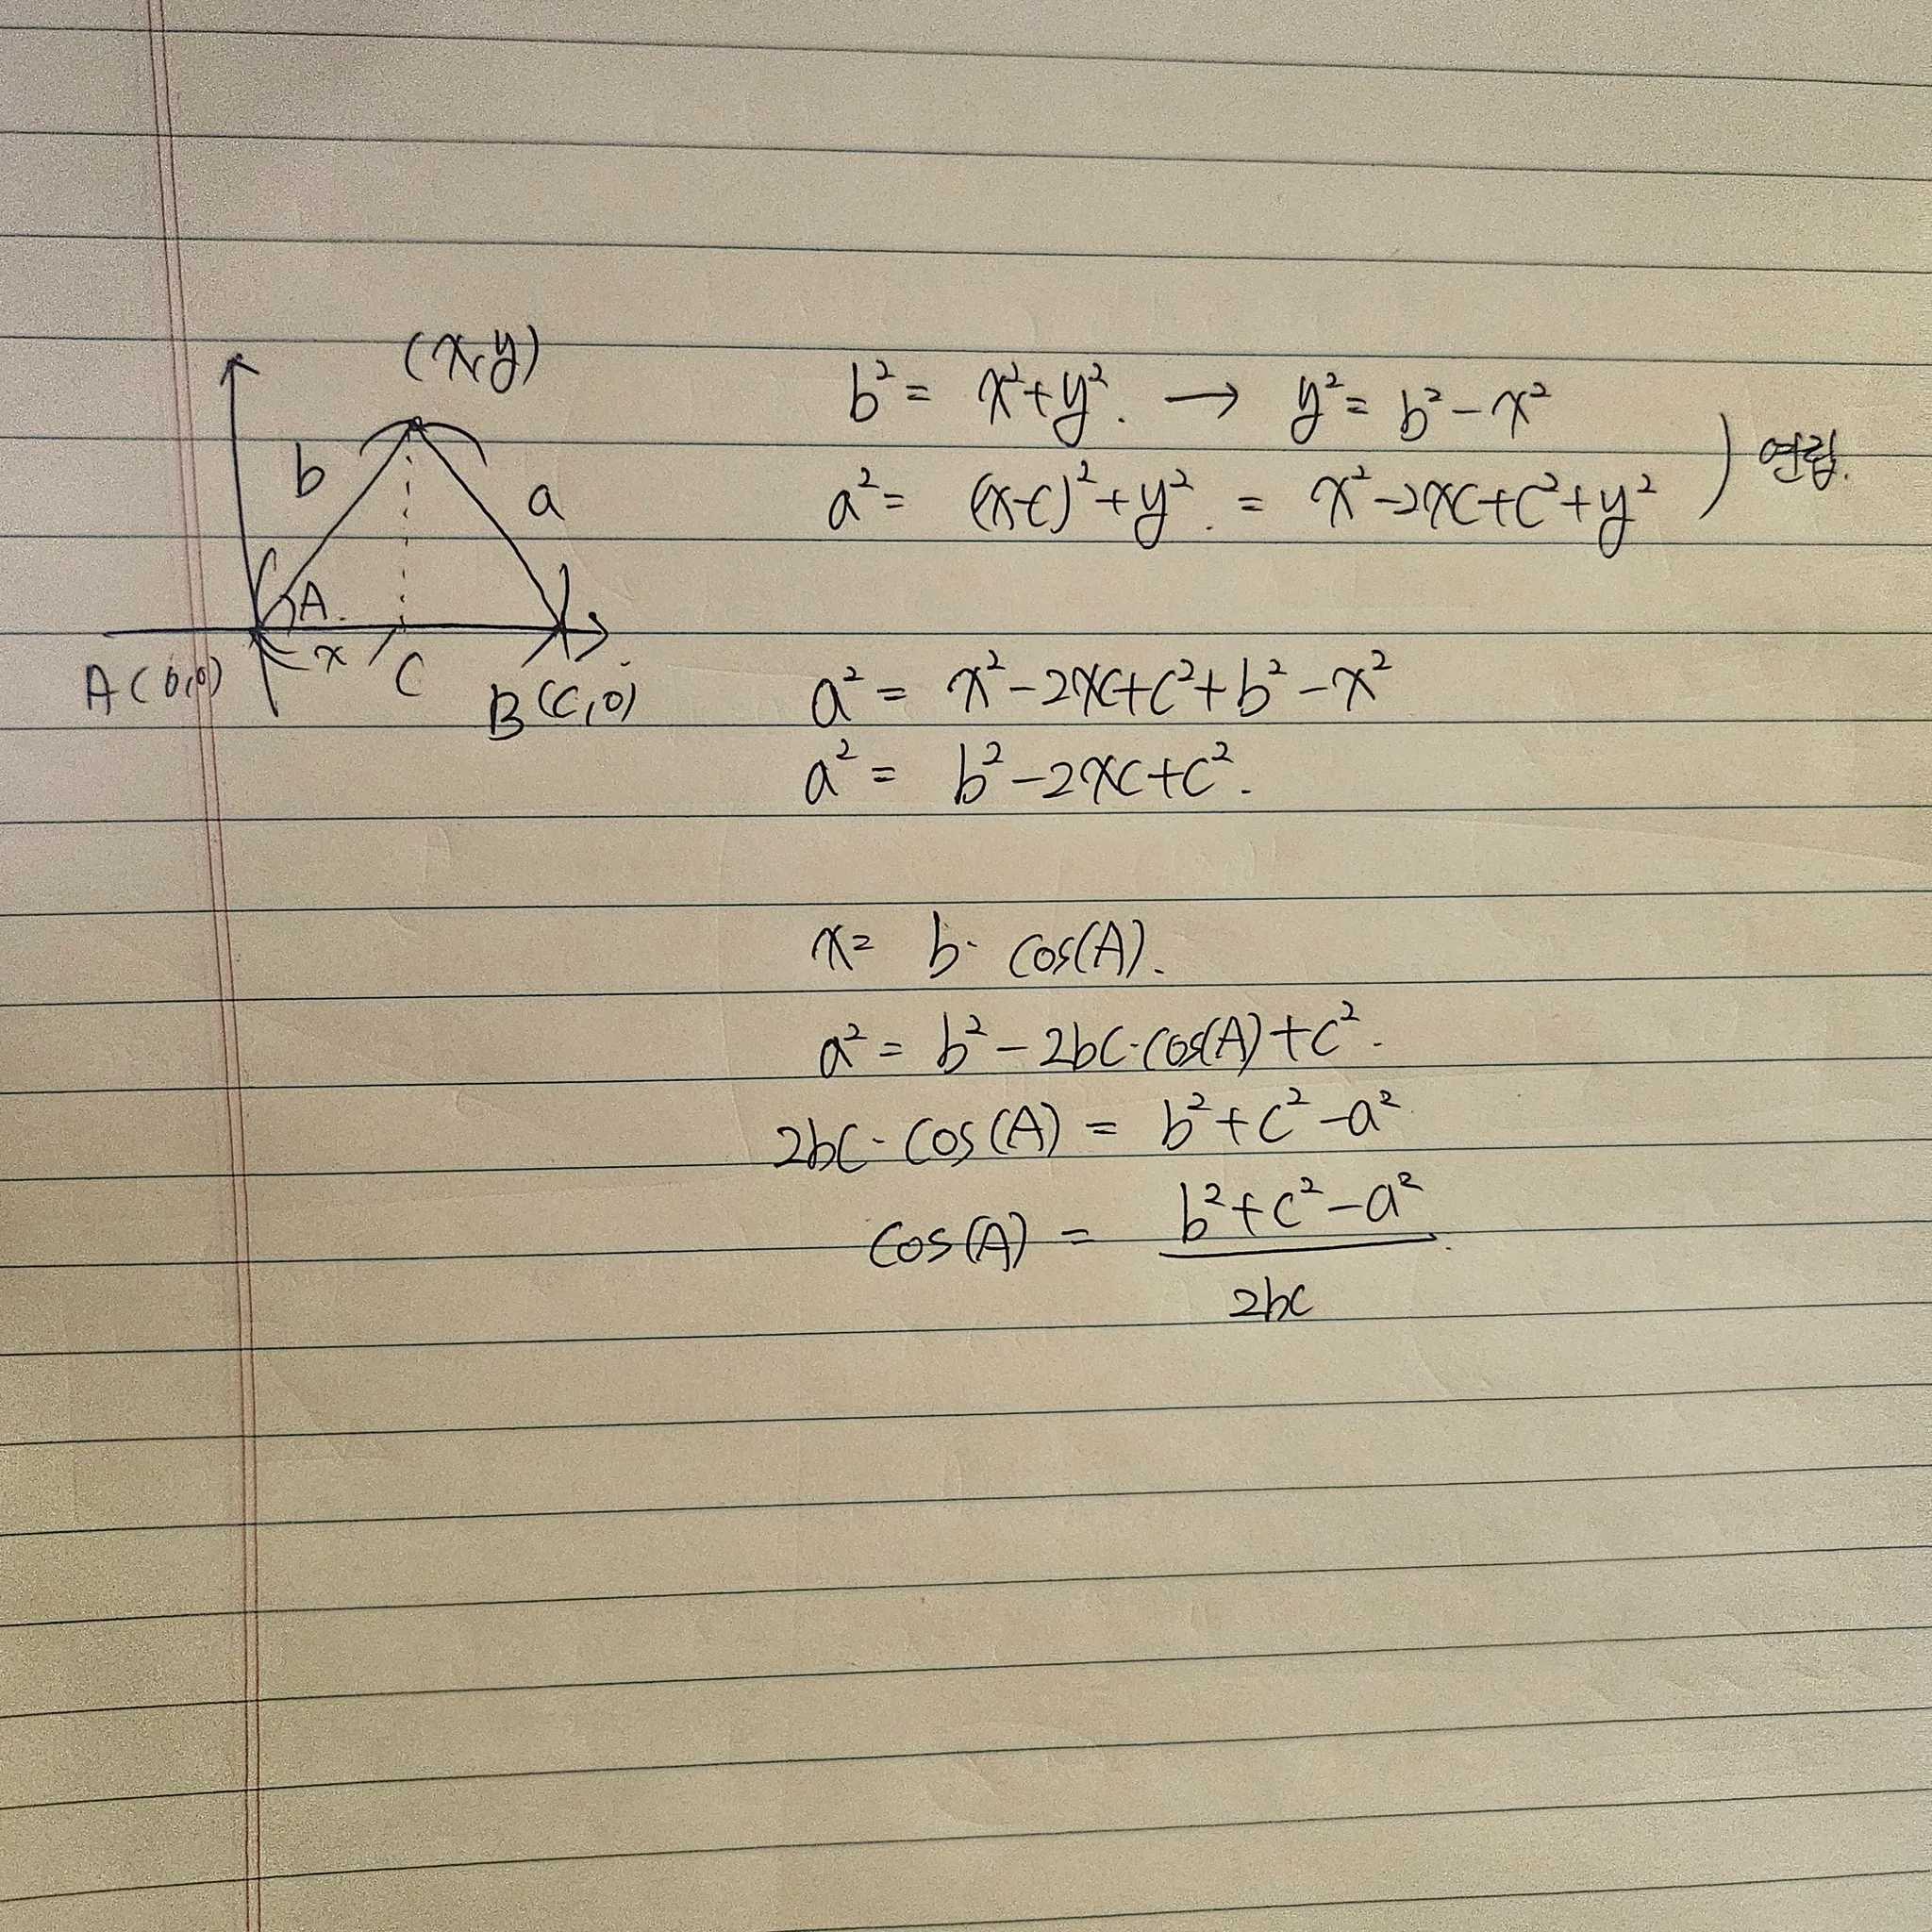 (x,y)
b
a
A.
x
C
A(0,0)
B(C,0)
b² = x²+y². → y² = b² - x²
a² = (x-c)² + y². = x² - 2xc + c² + y² ) 연립.
a² = x² - 2xc + c² + b² - x²
a² = b² - 2xc + c².
x = b· cos(A).
a² = b² - 2bc·cos(A) + c².
2bc· cos(A) = b² + c² - a²
cos(A) = b² + c² - a²
2bc